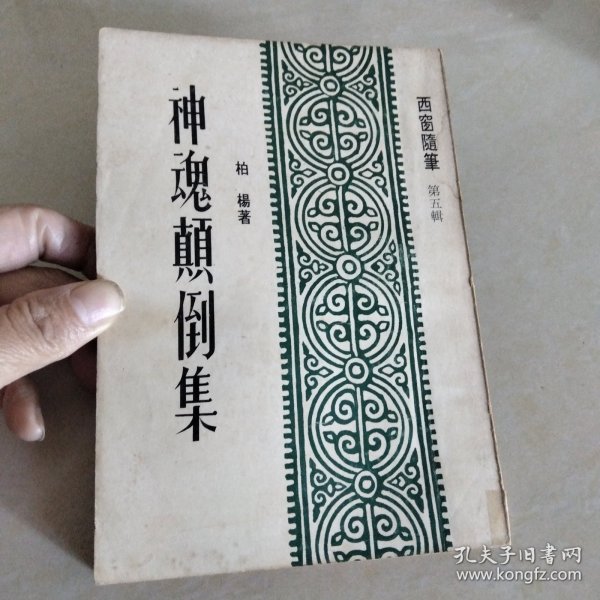 西窗隨筆 第五輯
柏楊著
神魂顛倒集
孔夫子旧书网
www.kongfz.com